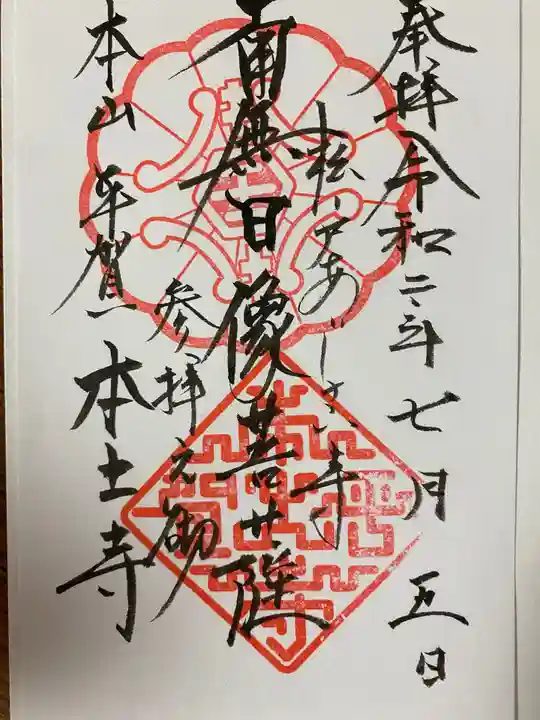 奉拝 令和二年七月五日
松戸あじさい寺
南無日像菩薩
参拝之御
本山 平賀 本土寺